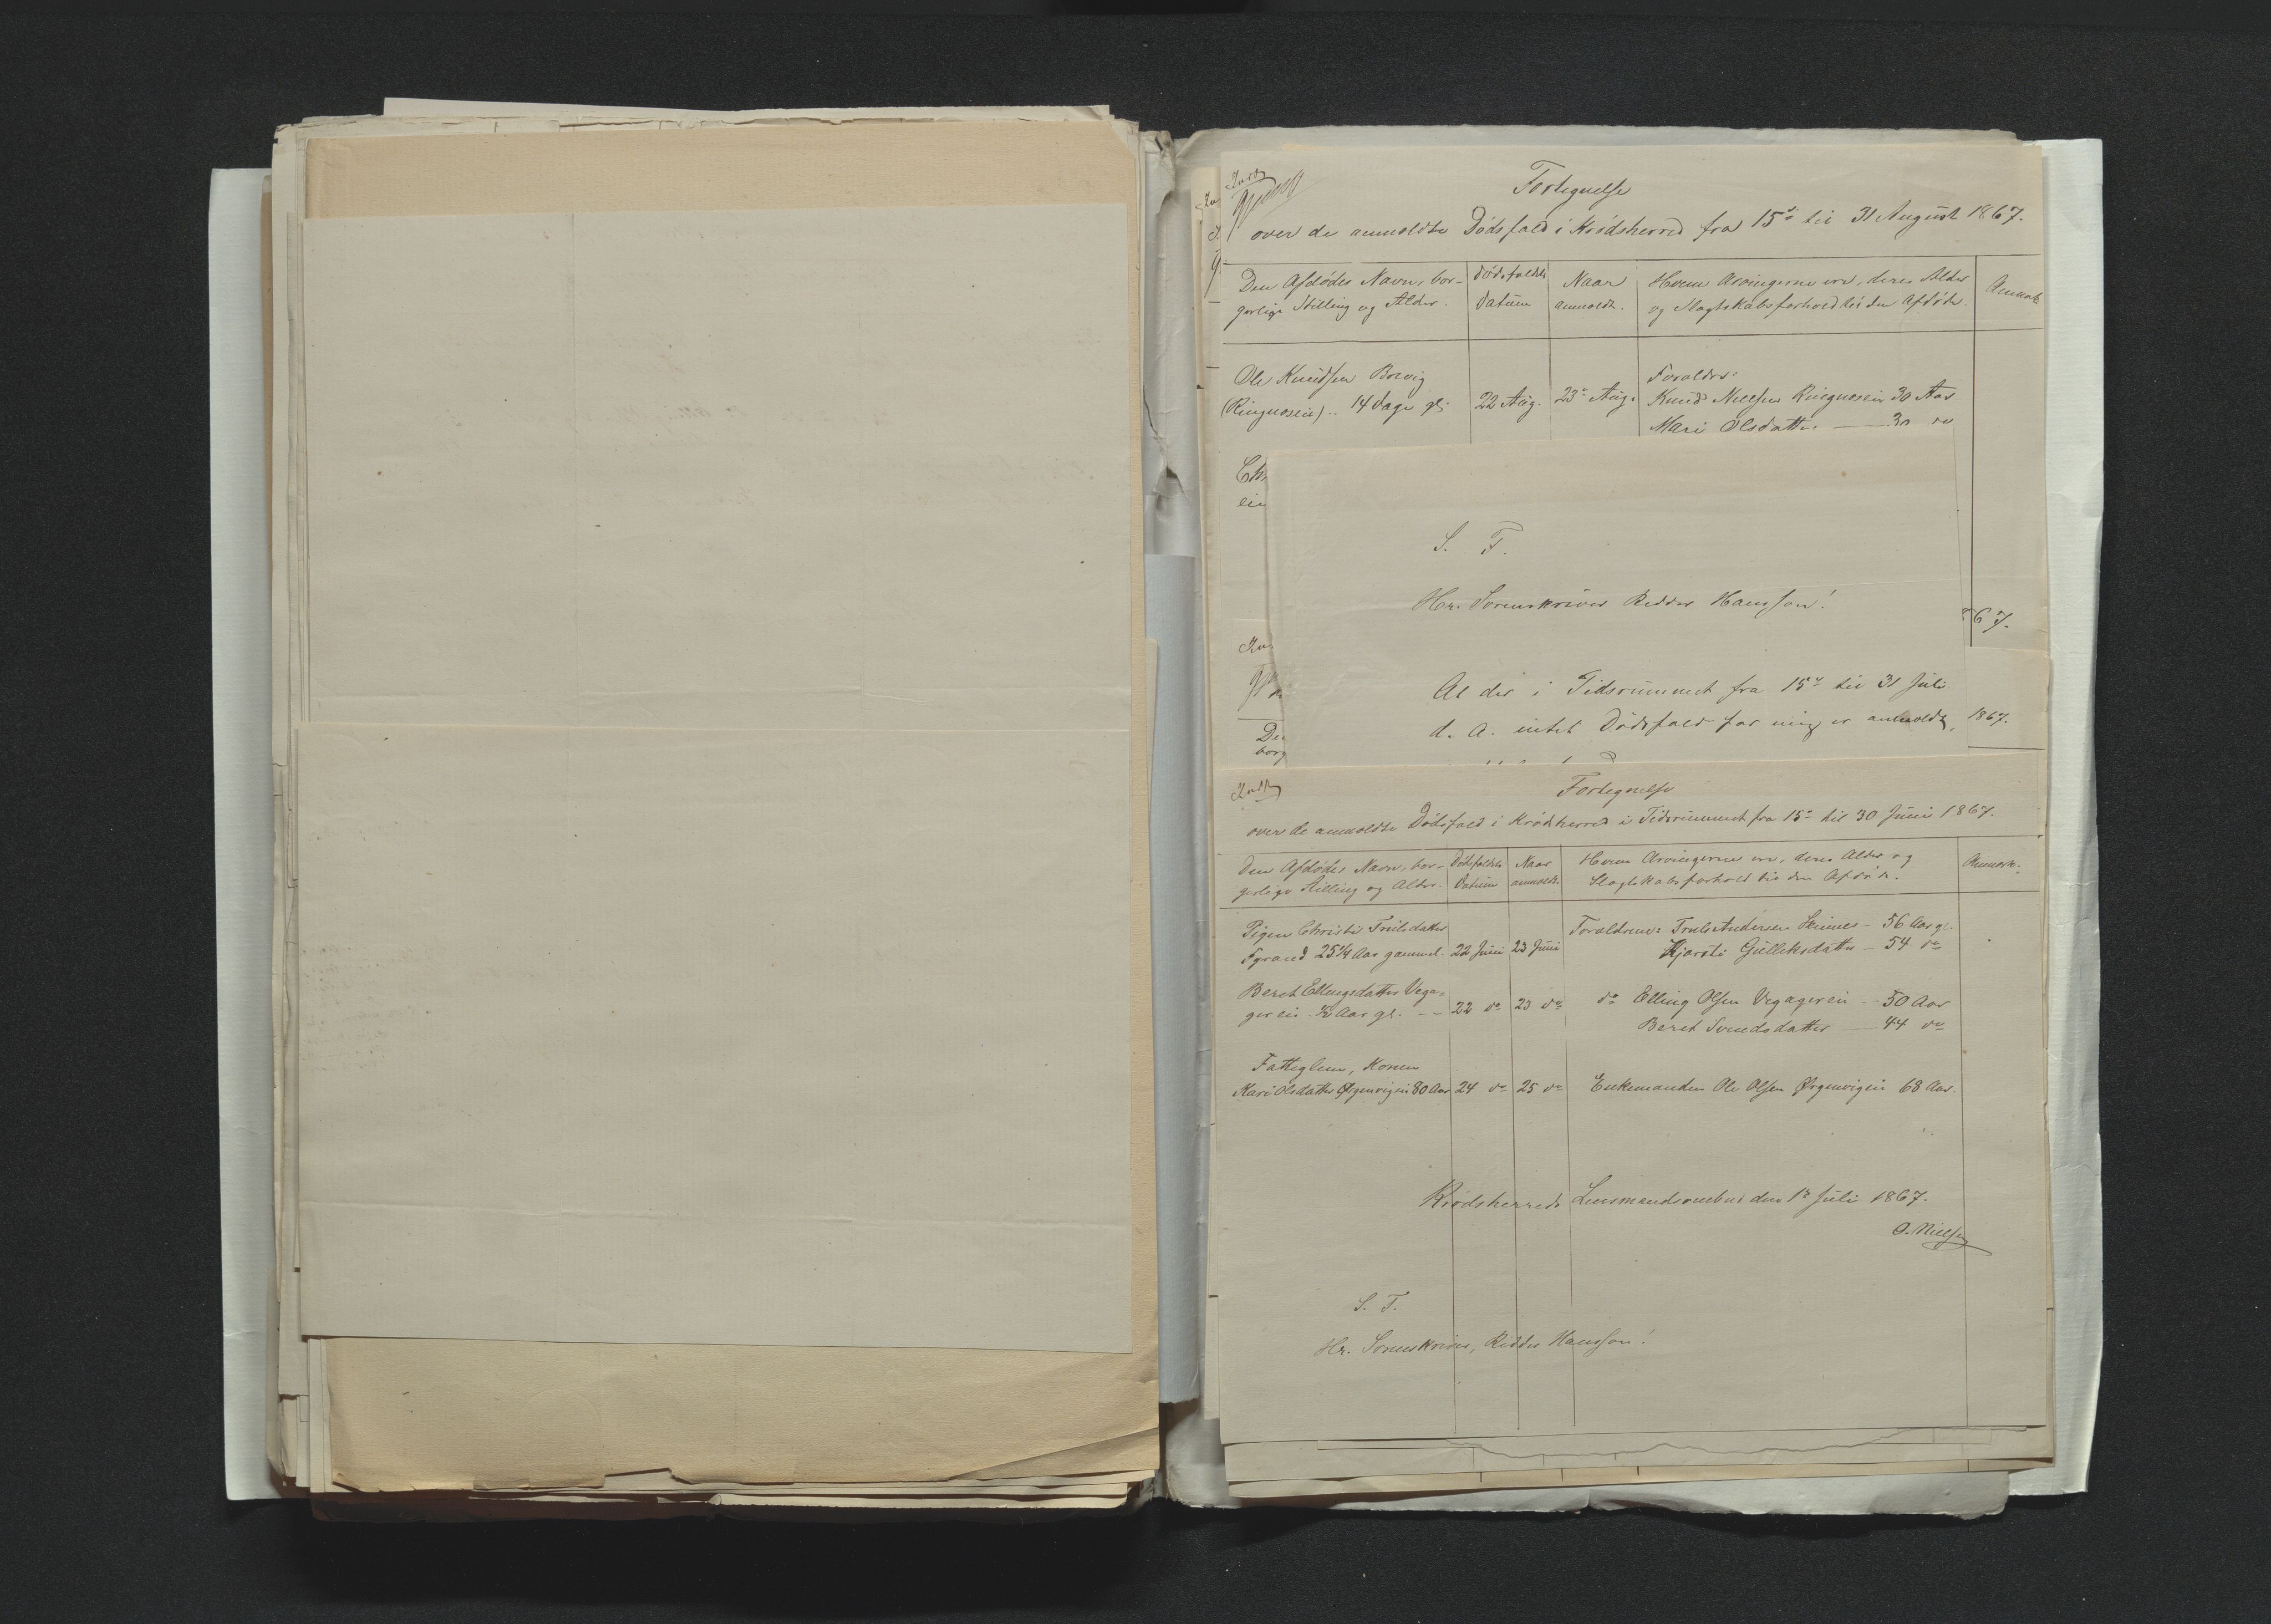 Indf
Fortegnelse
over de anmeldte Dødsfald i Krødsherred fra 15de til 31 August 1867.
Den Afdødes Navn, bor-
gerlige Stilling og Alder.
Dødsfaldets
Datum
Naar
anmeldt.
Hvem Arvingerne ere, deres Alder
og Slagtskabsforhold til den Afdøde.
Anmærk.
Ole Knudsen Borvig
(Ringnæseie) .. 14 Dage gl.
22 Aug.
23de Aug.
Forældre:
Knud Nielsen Ringnæseie 30 Aar
Mari Olsdatter — 30 do
Ch
eie
S. T.
Hr. Sorenskriver Ridder Hansson!
67.
At der i Tidsrummet fra 15de til 31 Juli
d. A. intet Dødsfald for mig er anmeldt,
1867.
De
borg
Indf
Fortegnelse
over de anmeldte Dødsfald i Krødsherred i Tidsrummet fra 15de til 30 Juni 1867.
Den Afdødes Navn, bor-
gerlige Stilling og Alder.
Dødsfaldets
Datum
Naar
anmeldt.
Hvem Arvingerne ere, deres Alder og
Slagtskabsforhold til den Afdøde.
Anmærk.
Pigen Christi Trulsdatter
Fyrand 25 1/4 Aar gammel.
22 Juni
23 Juni
Forældrene: Truls Andersen — 56 Aar gl.
Kjersti Gulleksdatter — 54 do
Beret Ellingsdatter Vega-
gereie 1/2 Aar gl. --
22 do
23 do
do Elling Olsen Vegagereie — 50 Aar
Beret Svendsdatter — 44 do
Fattiglem, Konen
Kari Olsdatter Ørgenvigeie 80 Aar
24 do
25 do
Enkemanden Ole Olsen Ørgenvigeie 68 Aar.
Krødsherreds Lensmandsombud den 1ste Juli 1867.
O. Nielsen
S. T.
Hr. Sorenskriver, Ridder Hansson!